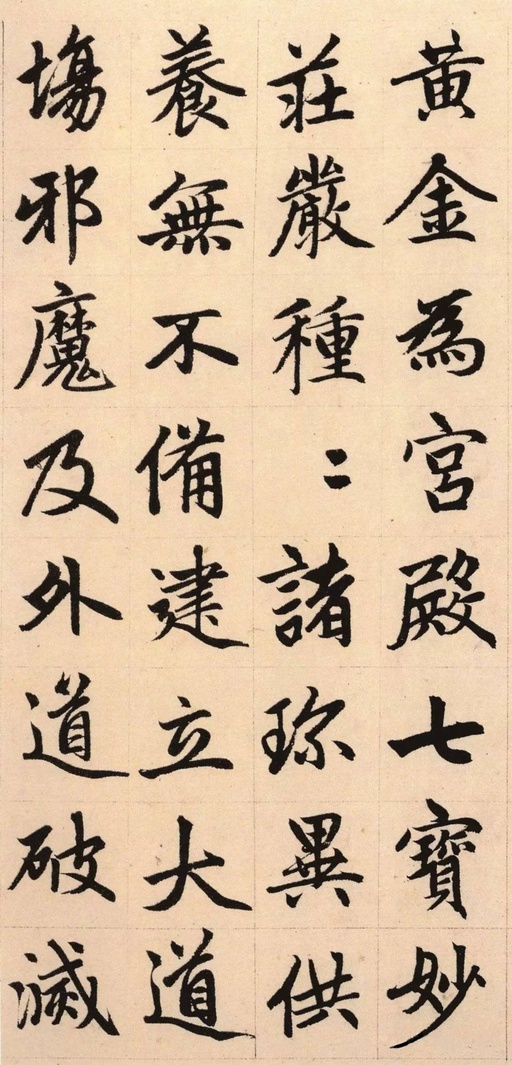 黃金為宮殿七寶妙
莊嚴種〻諸珎異供
養無不備建立大道
場邪魔及外道破滅